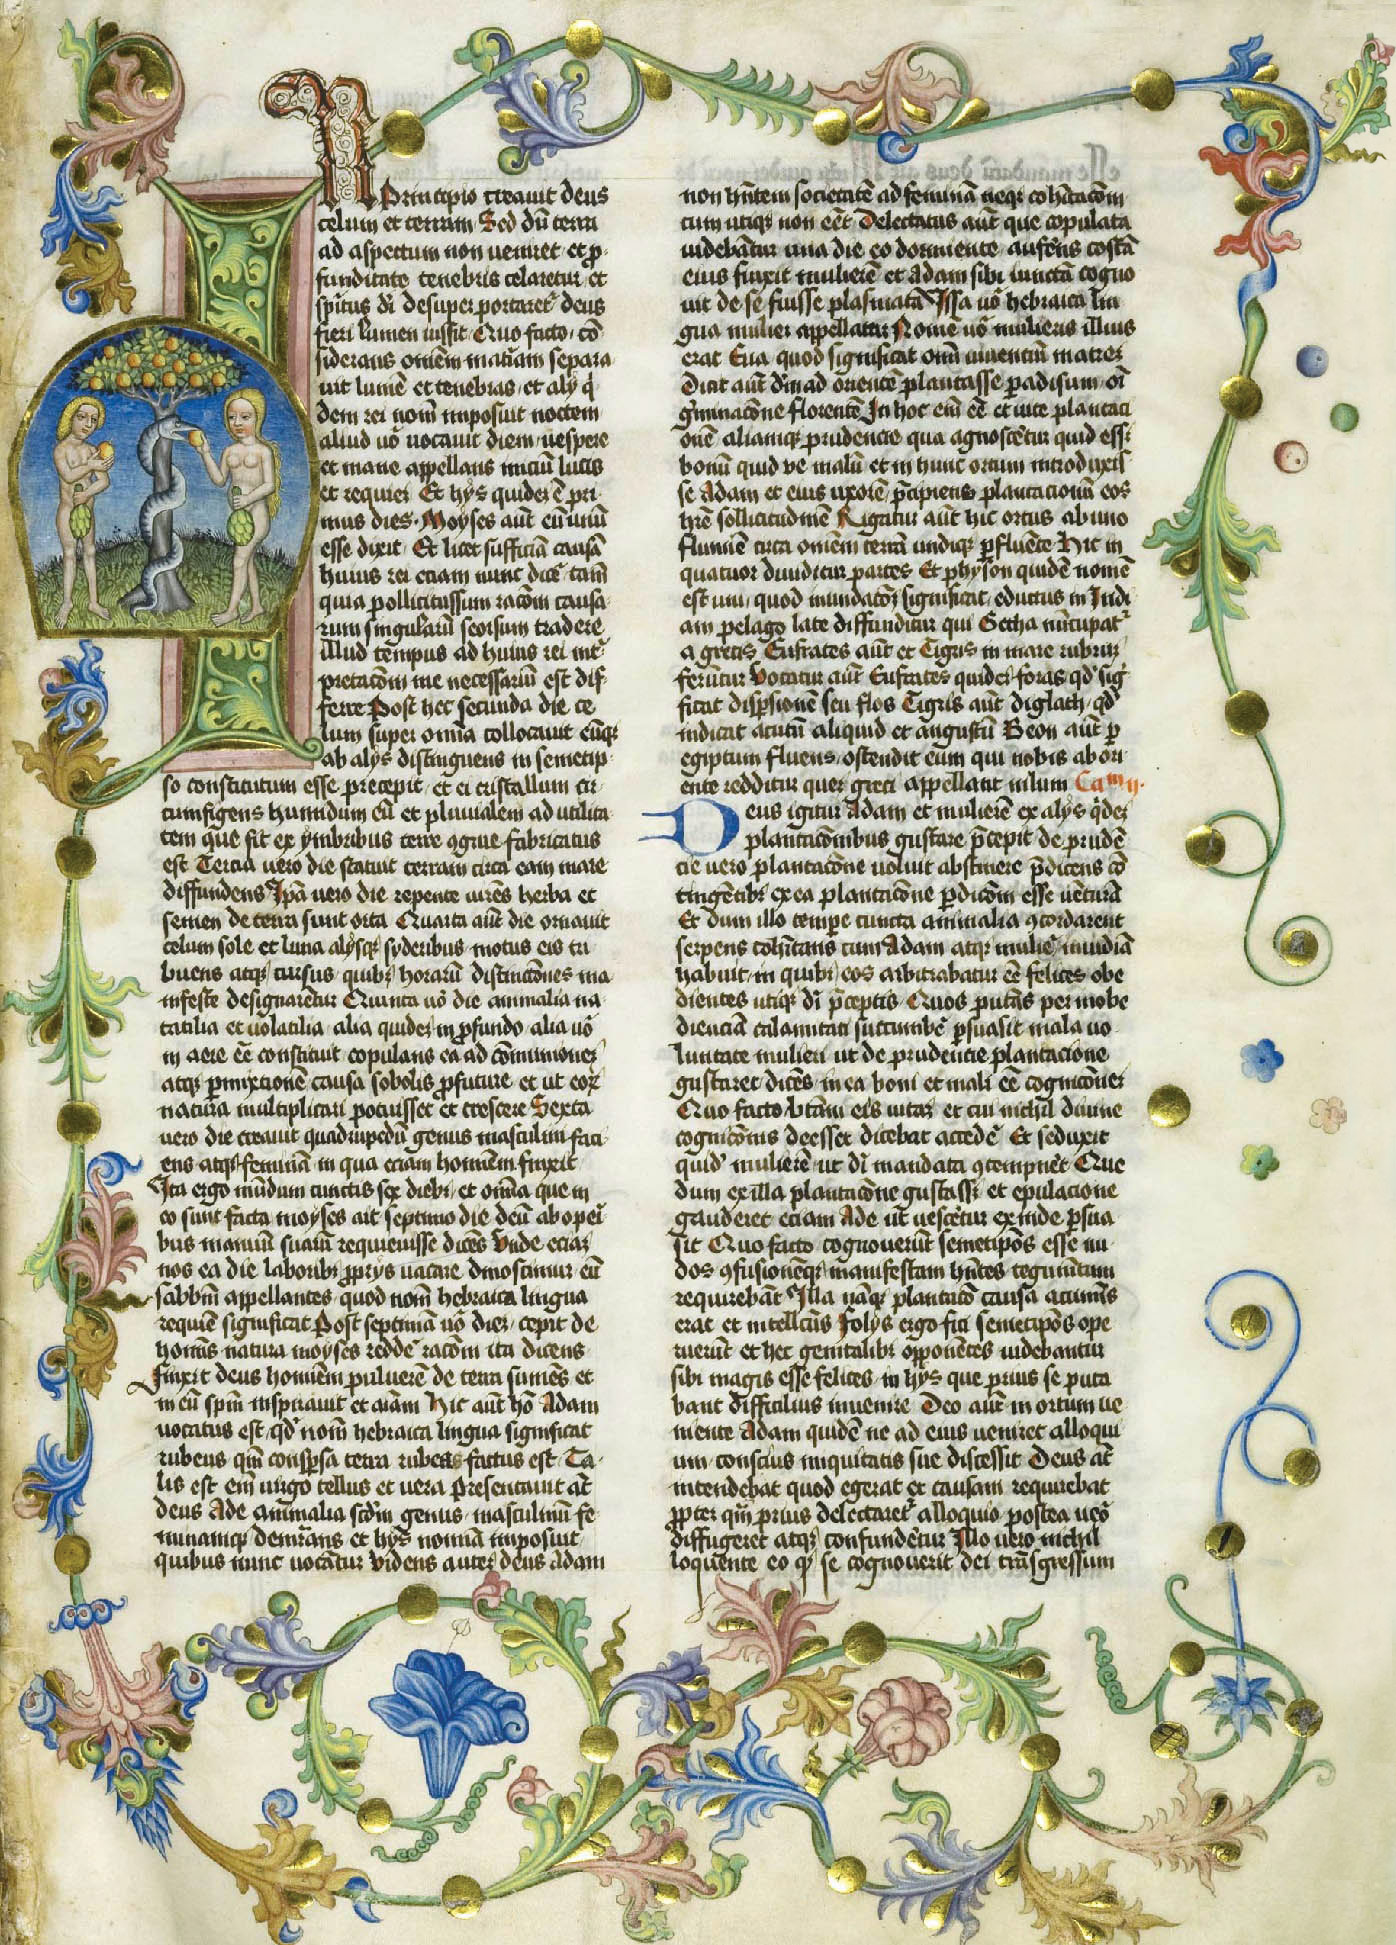 IN Principio creauit deus
celum et terram Sed dū terra
ad aspectum non veniret et p̱
funditate tenebris celaretur et
spūs dī desuper portaretʳ deus
fieri lumen iussit Quo facto cō
siderans omēm mat̄iam separa
uit lumē et tenebras et alij q̇
dem rei nomē imposuit noctem
aliud uō uocauit diem uespere
et mane appellans iniciū lucis
et requiei Et hijs quidē ē pri
mus dies Moyses aūt eū unū
esse dixit Et licet sufficiā causā
huius rei eciam nunc dicē tam̄
quia pollicitus sum racōm causa
rum singularū seorsum tradere
illud tempus ad huius rei int̄
pretacōm me necessariū est dif
ferre Post hec secunda die ce
lum super om̄ia collocauit eūqʒ
ab alijs distinguens in semetip
so constitutum esse precepit et ei cristallum cir
cumfigens humidum eū et pluuialem ad utilita
tem que fit ex ymbribus terre ꝯgrue fabricatus
est Tercia uero die statuit terram circa eam mare
diffundens Ip̄a uero die repente uirēs herba et
semen de terra sunt orta Quarta aūt die ornauit
celum sole et luna alijsqʒ syderibus motus eis tri
buens atqʒ cursus quibʒ horarū distinctōnes ma
nifeste designarētur Quinta uō die animalia na
tatilia et uolatilia alia quidē in ꝓfundo alia uō
in aere eē constituit copulans ea ad cōmunionē
atqʒ ꝑmixtionē causa sobolis ꝓfuture et ut eoꝝ
natura multiplicari potuisset et crescere Sexta
uero die creauit quadrupedū genus masculin faci
ens atqʒ feminā in qua eciam homiēm finxit
Ita ergo mūdum cunctis sex diebʒ et om̄ia que in
eo sunt facta moyses ait septimo die deū ab operi
bus manuū suarū requieuisse dicēs Vnde eciam
nos ea die laboribʒ ꝓprijs uacare dinoscimur eū
sabbm̄ appellantes quod nomē hebraica lingua
requiē significat Post septimā uō diē cepit de
homīs natura moyses reddē racōm ita dicens
Finxit deus homiēm puluerē de terra sumēs et
in eū spm̄ inspirauit et aīam Hic aūt hō Adam
uocatus est qd̄ nomē hebraica lingua significat
rubeus qm̄ conspersa terra rubea factus est Ta
lis est em̄ uirgo tellus et uera Presentauit aūt
deus Ade animalia scdm̄ genus masculinū fe
mininūqʒ demr̄ans et hijs nomīa imposuit
quibus nunc uocātur Videns autē deus Adam
non hn̄tem societatē ad feminā neqʒ cohītacōm
cum utiqʒ non eēt Delectatus aūt que copulata
uidebātur una die eo dormiente auferens costā
eius finxit mulierē et Adam sibi iunctā cogno
uit de se fuisse plasmatā Issa uō hebraica lin
gua mulier appellatur Nomē uō mulieris illius
erat Eua quod significat om̄ uiuentiū matrē
Dicit aūt dm̄ ad orientē plantasse paradisum oī
gīnacōne florentē In hoc em̄ eē et uite plantaci
onē aliamqʒ prudencie qua agnoscētur quid esset
bonū quid ve malū et in hunc ortum introduxis
se Adam et eius uxorē p̄cipiens plantacionū eos
hr̄e sollicitudinē Rigatur aūt hic ortus ab uno
flumīe circa omēm terrā undiqʒ ꝑfluēte Hic in
quatuor diuiditur partes Et physon quidē nomē
est uni quod inundacōꝫ significat eductus in Indi
am pelago late diffunditur qui Getha nūcupatʳ
a grecis Eufrates aūt et Tigris in mare rubrum
ferūtur Vocatur aūt Eufrates quidē foras qd̄ sig
ficat disꝑsionē seu flos Tigris aūt diglath qd̄
indicat acutū aliquid et angustū Geon aūt ꝑ
egiptum fluens ostendit eum qui nobis ab ori
ente redditur quē greci appellant nilum Cam̄ ij
Deus igitur Adam et mulierē ex alijs q̇dē
plantacōnibus gustare p̄cepit de prudē
cie uero plantacōne uoluit abstinere p̄dicens cō
tingētibʒ ex ea plantacōne ꝑdicōm esse uēturā
Et dum illo tempe cuncta animalia ꝯcordarent
serpens cohītans cum Adam atqʒ muliē inuidiā
habuit in quibʒ eos arbitrabatur eē felices obe
dientes utiqʒ dī p̄ceptis Quos putās per inobe
dienciā calamitati succumbē ꝑsuasit mala uo
luntate mulieri ut de prudencie plantacione
gustaret dicēs in ea boni et mali eē cognicōnē
Quo facto btām eis uitā et cui nichil diuine
cognicōnis deesset dicebat accedē Et seduxit
quidē mulierē ut dī mandata ꝯtempnēt Que
dum ex illa plantacōne gustasset et epulacione
gauderet eciam Ade ut uescētur exinde ꝑsua
sit Quo facto cognouerūt semetipōs esse nu
dos ꝯfusionēqʒ manifestam hn̄tes tegumētum
requirebāt Illa nāqʒ plantacō causa acuminis
erat et intellcūs Folijs ergo fici semetipōs ope
ruerūt et hec genitalibʒ opponētes uidebantur
sibi magis esse felices in hijs que prius se puta
bant difficilius inuenire Deo aūt in ortum ue
niente Adam quidē ne ad eius ueniret alloqui
um conscius iniquitatis sue discessit Deus aūt
intendebat quod egerat et causam requirebat
ꝓpter quā prius delectaretʳ alloquio postea uō
diffugeret atqʒ confundētur Illo uero nichil
loquente eo qʒ se cognouerit dei trāsgressum